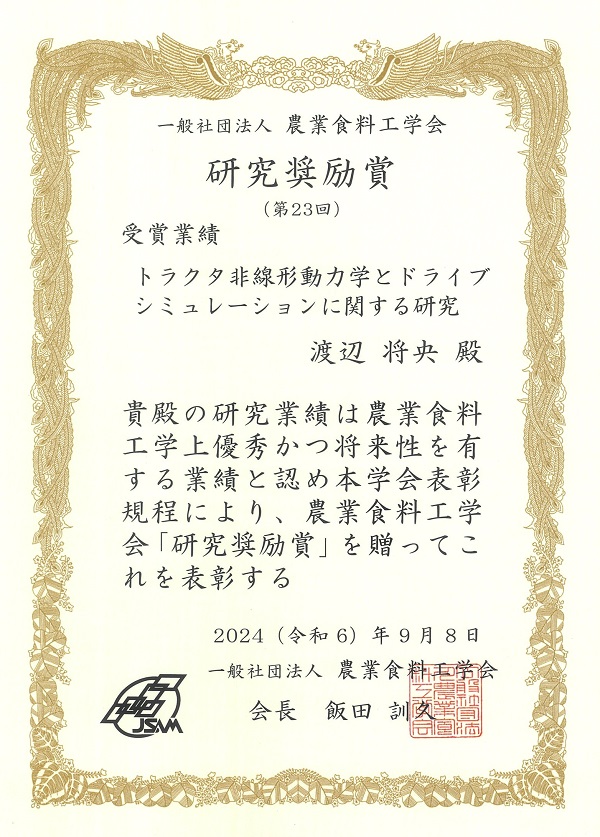 一般社団法人 農業食料工学会
研究奨励賞
(第23回)
受賞業績
トラクタ非線形動力学とドライブ
シミュレーションに関する研究
渡辺 将央 殿
貴殿の研究業績は農業食料
工学上優秀かつ将来性を有
する業績と認め本学会表彰
規程により、農業食料工学
会「研究奨励賞」を贈ってこ
れを表彰する
2024(令和6)年9月8日
一般社団法人 農業食料工学会
会長 飯田 訓久
JSAM